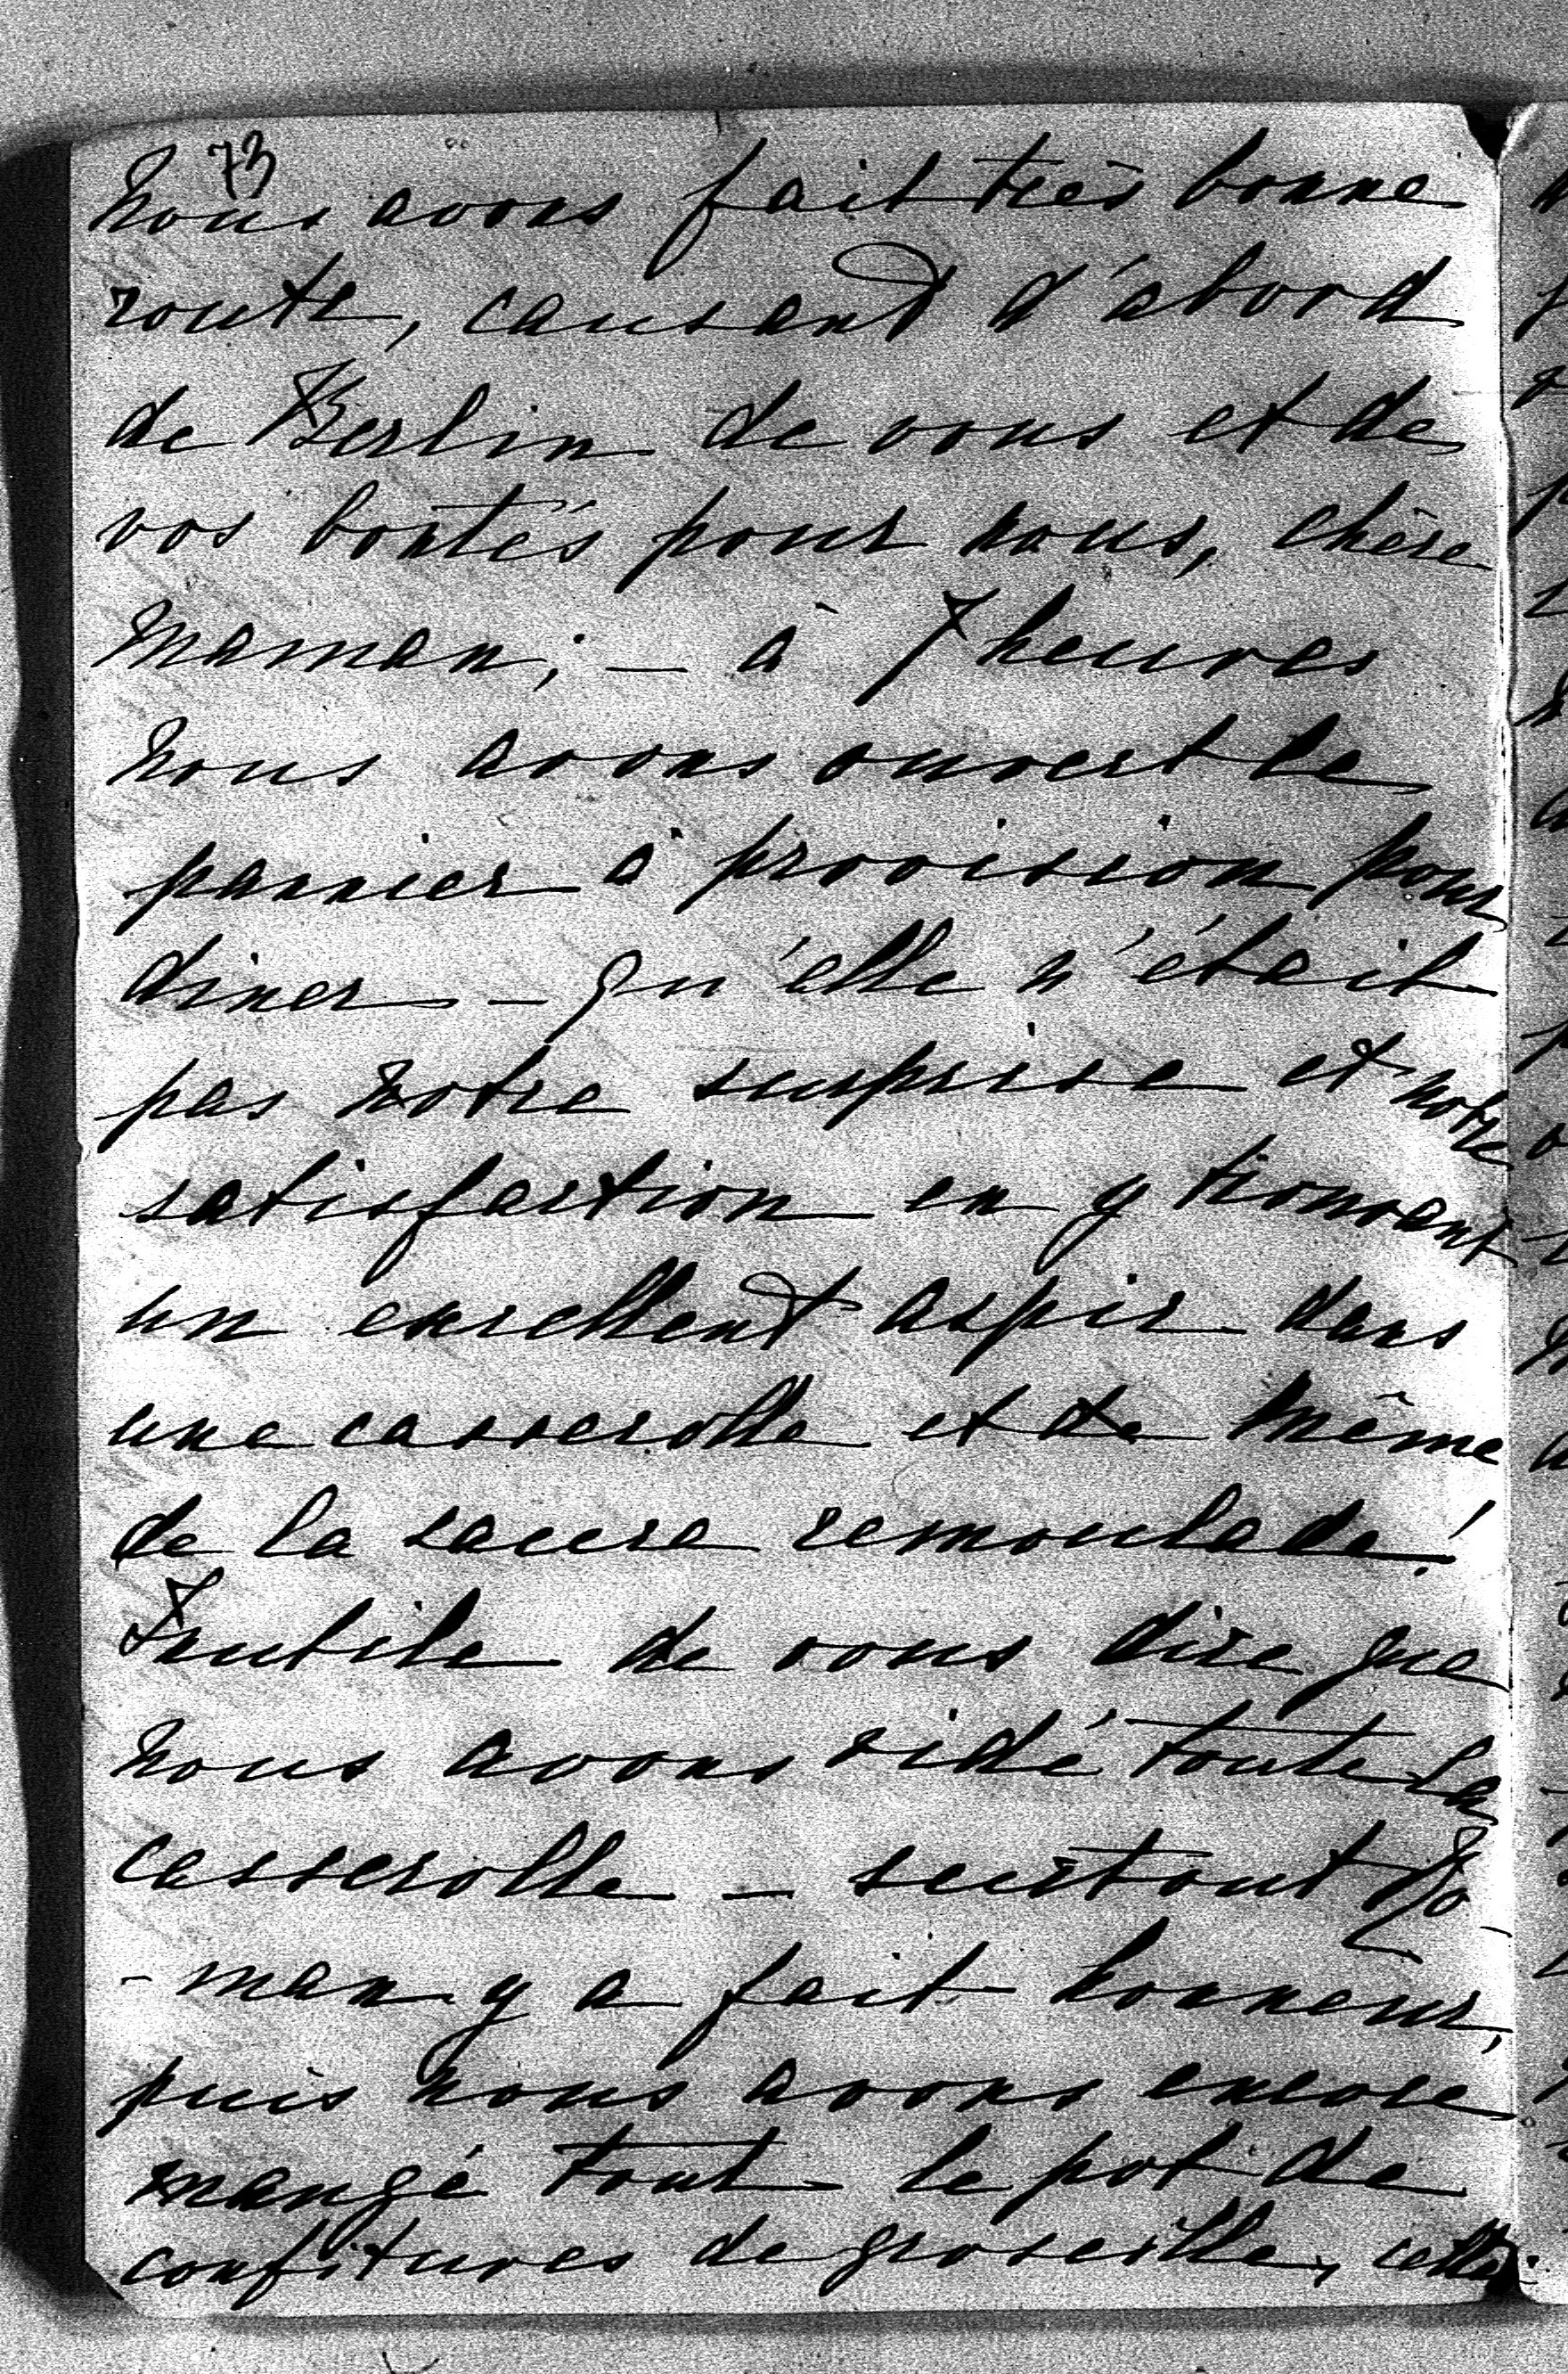 73
Nous avons fait très bonne
route, causant d'abord
de Berlin de vous et de
vos bontés pour nous, chère
Maman; — à 7 heures
nous avons ouvert le
panier à provision pour
diner — qu'elle n'était
pas notre surprise et notre
satisfaction en y trouvant
un excellent aspic dans
une casserolle et de même
de la sauce remoulade!
Inutile de vous dire que
nous avons vidé toute la
casserolle — surtout Ro-
-man y a fait honneur,
puis nous avons encore
mangé tout le pot de
confitures de groseille, cette